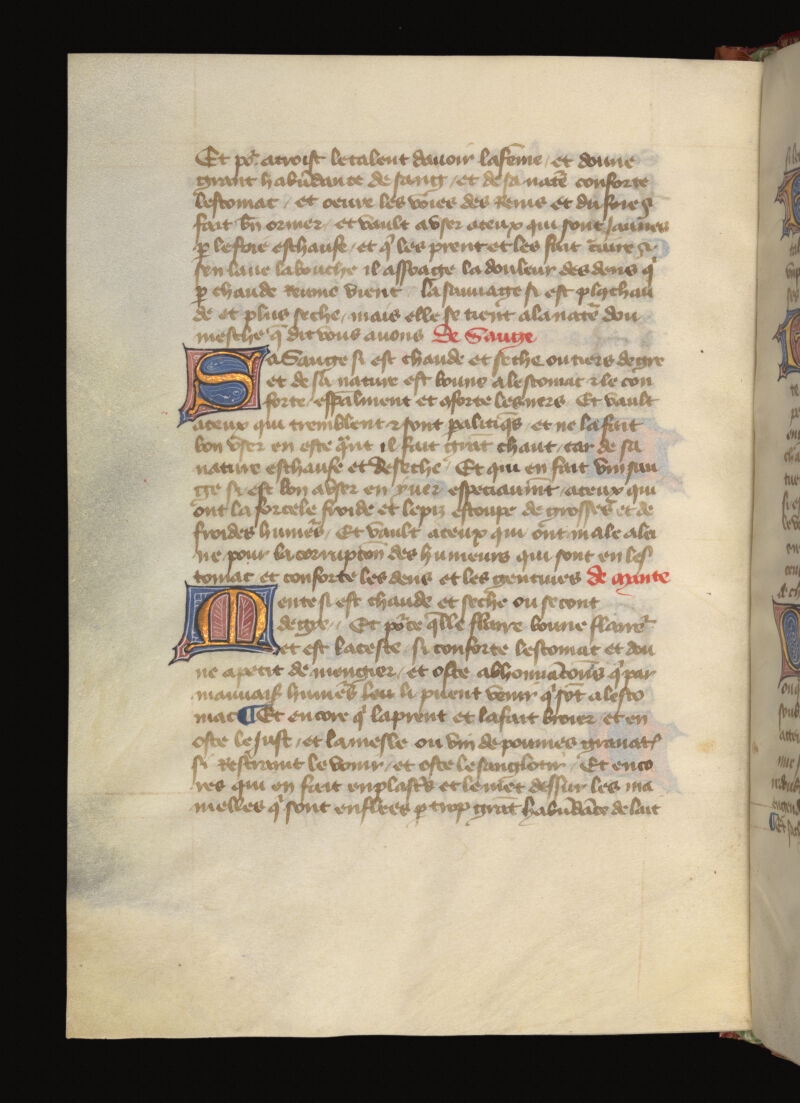 Et po² acroist le talent dauoir la fēme / et donne
grant habūdance de sang / et de sa natē conforte
lestomac / et oeuvre les voies des Reins et du foie
fait bn̄ oriner / et vault a vser a ceux qui sont jaunes
p̱ le foie eschaufe / et q̄ les prent et les fait cuire et
sen laue la bouche il assoage la douleur des dens q̄
p̱ chaude reume vient la sauuage si est plꝯ chau
de et plus seche / mais elle se tient a la natē dou
mesche q̄ dit vous auons De Sauge
La Sauge si est chaude et seche ou tiers degre
et de sa nature est bonne a lestomac ⁊ le con
forte / esp̄alment et ꝯforte les ners Et vault
a ceux qui tremblent ⁊ sont palitiq̄s / et ne la fait
bon vser en este q̄nt il fait grāt chaut / car de sa
nature eschaufe et deseche Et qui en fait vin sau
ge si est bon a vser en yuer especiaum̄t / a ceux qui
ont la forcele froide et le piz estoupe de grosses et de
froides humes̄ / Et vault a ceux qui ont male alei
ne pour la corrupcōn des humeurs qui sont en les
tomac et conforte les dens et les genciues De mente
Mente si est chaude et seche ou second
degre / Et po²ce q̄lle flaire bonne flaire²
et est laceste si conforte lestomac et don
ne apetit de mengier / et oste abhominacōns q̄ par
mauuais humēs leu li puent venir q̄ sōt a lesto
mac ¶ Et encore q̄ la prent et la fait broier et en
oste le just / et la mesle ou vin de poumes granat̄
si Restraint le vomir / et oste le sanglotir / Et enco
res qui en fait enplastr̄s et le met dessur les ma
melles q̄ sont enflees p̱ trop grāt habūdāce de lait